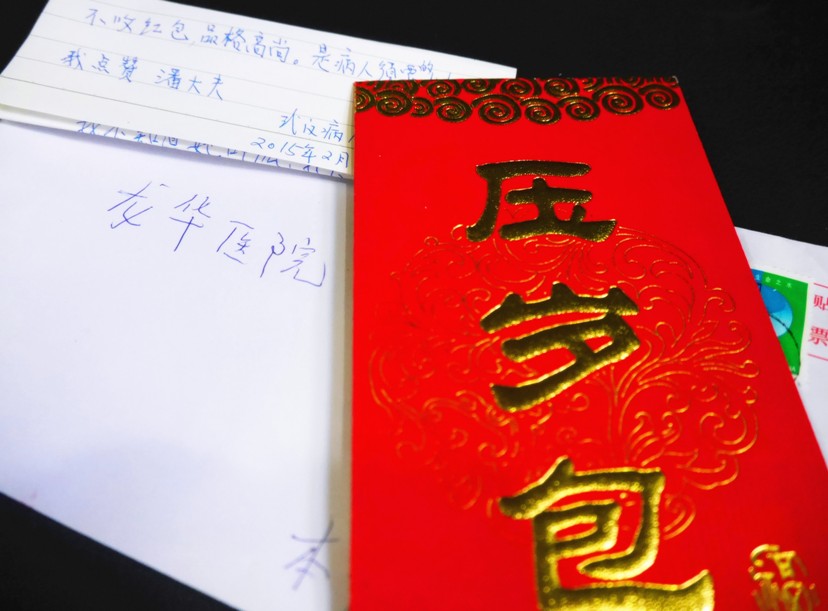 不收红包,品格高尚。是病人须
我点赞 潘大夫
病
2015年2月
龙华医院
本
压岁包
贴
票